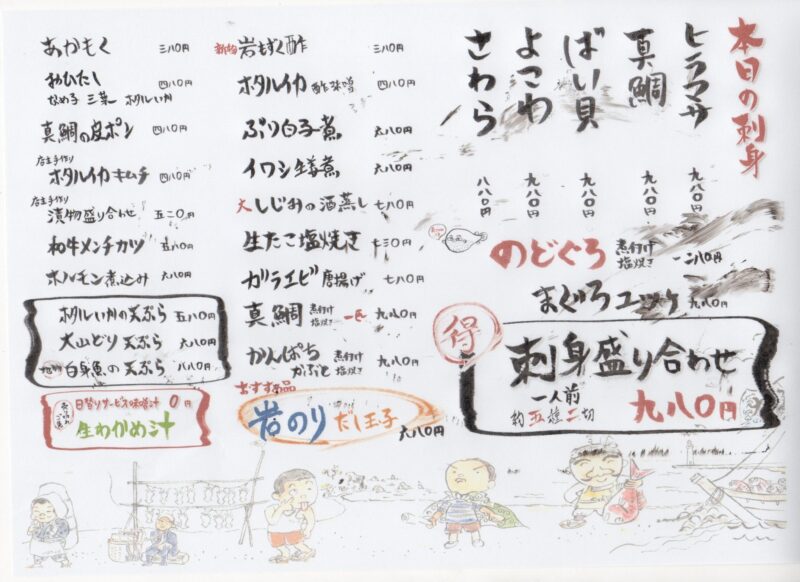 本日の刺身
ヒラマサ 九八〇円
真鯛 九八〇円
ばい貝 九八〇円
よこわ 九八〇円
さわら 八八〇円
のどぐろ 煮付け 塩焼き 一二八〇円
まぐろユッケ 九八〇円
得
刺身盛り合わせ
一人前
約五種二切
九八〇円
岩もずく酢 三八〇円
ホタルイカ 酢味噌 四八〇円
ぶり白子煮 六八〇円
イワシ生姜煮 六八〇円
大しじみの酒蒸し 七八〇円
生たこ塩焼き 七三〇円
ガラエビ唐揚げ 七八〇円
真鯛 煮付け 塩焼き 一匹 九八〇円
かんぱち かぶと 煮付け 塩焼き 九八〇円
おすすめ品
岩のり だし玉子 六八〇円
あかもく 三八〇円
おひたし 四八〇円
なめ子 三菜 ホタルいか
真鯛の皮ポン 四八〇円
店主手作り
ホタルイカキムチ 四八〇円
店主手作り
漬物盛り合わせ 五二〇円
和牛メンチカツ 五八〇円
ホルモン煮込み 六八〇円
ホタルいかの天ぷら 五八〇円
大山どり天ぷら 六八〇円
白身魚の天ぷら 八八〇円
日替りサービス味噌汁 0円
生わかめ汁